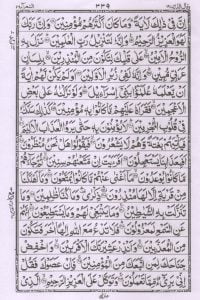 ٣٣٩
اِنَّ فِيْ ذٰلِكَ لَاٰيَةً وَمَا كَانَ اَكْثَرُهُمْ مُّؤْمِنِيْنَ وَاِنَّ رَبَّكَ
لَهُوَ الْعَزِيْزُ الرَّحِيْمُ وَاِنَّهٗ لَتَنْزِيْلُ رَبِّ الْعٰلَمِيْنَ نَزَلَ بِهِ
الرُّوْحُ الْاَمِيْنُ عَلٰى قَلْبِكَ لِتَكُوْنَ مِنَ الْمُنْذِرِيْنَ بِلِسَانٍ
عَرَبِيٍّ مُّبِيْنٍ وَاِنَّهٗ لَفِيْ زُبُرِ الْاَوَّلِيْنَ اَوَلَمْ يَكُنْ لَّهُمْ اٰيَةً
اَنْ يَّعْلَمَهٗ عُلَمٰٓؤُا بَنِيْٓ اِسْرَآءِيْلَ وَلَوْ نَزَّلْنٰهُ عَلٰى بَعْضِ
الْاَعْجَمِيْنَ فَقَرَاَهٗ عَلَيْهِمْ مَّا كَانُوْا بِهٖ مُؤْمِنِيْنَ كَذٰلِكَ سَلَكْنٰهُ
فِيْ قُلُوْبِ الْمُجْرِمِيْنَ لَا يُؤْمِنُوْنَ بِهٖ حَتّٰى يَرَوُا الْعَذَابَ الْاَلِيْمَ
فَيَاْتِيَهُمْ بَغْتَةً وَّهُمْ لَا يَشْعُرُوْنَ فَيَقُوْلُوْا هَلْ نَحْنُ مُنْظَرُوْنَ
اَفَبِعَذَابِنَا يَسْتَعْجِلُوْنَ اَفَرَءَيْتَ اِنْ مَّتَّعْنٰهُمْ سِنِيْنَ ثُمَّ
جَآءَهُمْ مَّا كَانُوْا يُوْعَدُوْنَ مَآ اَغْنٰى عَنْهُمْ مَّا كَانُوْا يُمَتَّعُوْنَ وَمَآ اَهْلَكْنَا
مِنْ قَرْيَةٍ اِلَّا لَهَا مُنْذِرُوْنَ ذِكْرٰى وَمَا كُنَّا ظٰلِمِيْنَ وَمَا
تَنَزَّلَتْ بِهِ الشَّيٰطِيْنُ وَمَا يَنْبَغِيْ لَهُمْ وَمَا يَسْتَطِيْعُوْنَ اِنَّهُمْ
عَنِ السَّمْعِ لَمَعْزُوْلُوْنَ فَلَا تَدْعُ مَعَ اللّٰهِ اِلٰهًا اٰخَرَ فَتَكُوْنَ
مِنَ الْمُعَذَّبِيْنَ وَاَنْذِرْ عَشِيْرَتَكَ الْاَقْرَبِيْنَ وَاخْفِضْ
جَنَاحَكَ لِمَنِ اتَّبَعَكَ مِنَ الْمُؤْمِنِيْنَ فَاِنْ عَصَوْكَ فَقُلْ
اِنِّيْ بَرِيْٓءٌ مِّمَّا تَعْمَلُوْنَ وَتَوَكَّلْ عَلَى الْعَزِيْزِ الرَّحِيْمِ الَّذِيْ